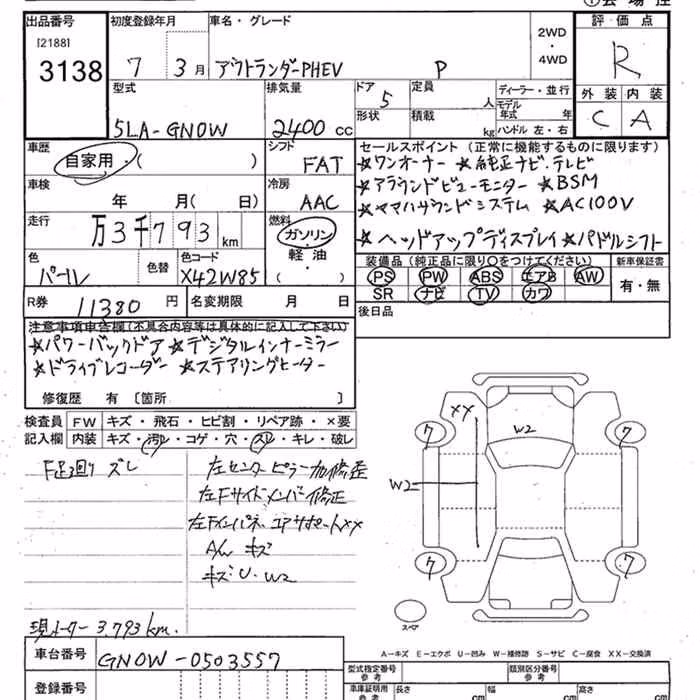 出品番号
[2188]
3138
初度登録年月
7 3月
車名・グレード
アウトランダーPHEV P
2WD
・
4WD
評価点
R
外装 内装
C A
型式
5LA-GN0W
排気量
2400 cc
ドア
5
形状
定員
人
積載
kg
ディーラー・並行
モデル年式 年
ハンドル 左・右
車歴
自家用・( )
シフト
FAT
セールスポイント (正常に機能するものに限ります)
★ワンオーナー ★純正ナビ.テレビ
★アラウンドビューモニター ★BSM
★ヤマハサウンドシステム ★AC100V
★ヘッドアップディスプレイ★パドルシフト
車検
年 月( 日)
冷房
AAC
走行
万3千793km
燃料
ガソリン
軽油
( )
色
パール
色替
色コード
X42W85
装備品 (純正品に限り○をつけてください)
PS PW ABS エアB AW
SR ナビ TV カワ
新車保証書
有・無
R券 11380 円
名変期限 月 日
後日品
注意事項申告欄(不具合内容等は具体的に記入して下さい)
★パワーバックドア ★デジタルインナーミラー
★ドライブレコーダー ★ステアリングヒーター
修復歴 有 〔箇所
検査員
記入欄
FW キズ・飛石・ヒビ割・リペア跡・×要
内装 キズ・汚レ・コゲ・穴・スレ・キレ・破レ
F足廻り ズレ
左センターピラー加修歪
左Fサイドメンバー修正
左Fインパネ、コアサポートXX
AW キズ
キズ U・W2
現メーター 3,793km.
XX
W2
W2
ワ
ワ
ワ
ワ
スペア
A-キズ E-エクボ U-凹み W-補修跡 S-サビ C-腐食 XX-交換済
車台番号 GN0W-0503557
登録番号
型式指定番号
参考
類別区分番号
参考
車庫証明用
参考
長さ cm
幅 cm
高さ cm